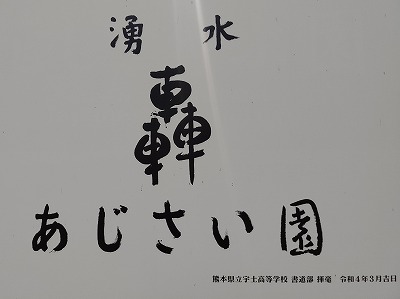 湧水
轟
あじさい園
熊本県立宇土高等学校 書道部 揮毫 令和4年3月吉日